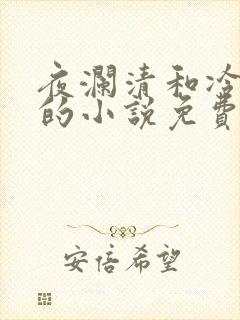 夜瀾清和冷
的小說免費
安倍希望